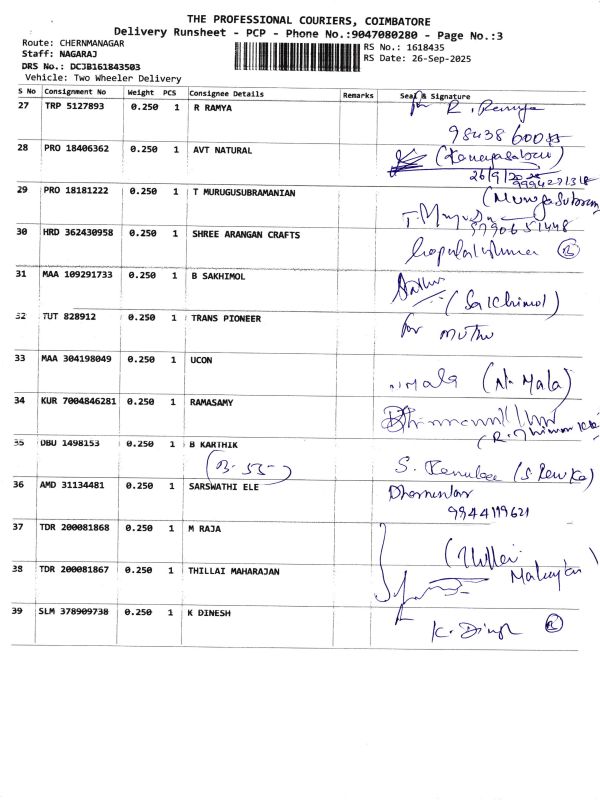 THE PROFESSIONAL COURIERS, COIMBATORE
Delivery Runsheet - PCP - Phone No.:9047080280 - Page No.:3
Route: CHERNMANAGAR
Staff: NAGARAJ
DRS No.: DCJB161843503
Vehicle: Two Wheeler Delivery
RS No.: 1618435
RS Date: 26-Sep-2025
S No Consignment No Weight PCS Consignee Details Remarks Seal & Signature
27 TRP 5127893 0.250 1 R RAMYA for R. Ramya
28 PRO 18406362 0.250 1 AVT NATURAL
26/9/2025
29 PRO 18181222 0.250 1 T MURUGUSUBRAMANIAN
9790651448
30 HRD 362430958 0.250 1 SHREE ARANGAN CRAFTS
31 MAA 109291733 0.250 1 B SAKHIMOL
32 TUT 828912 0.250 1 TRANS PIONEER for muthu
33 MAA 304198049 0.250 1 UCON
(N. Mala)
34 KUR 7004846281 0.250 1 RAMASAMY
35 DBU 1498153 0.250 1 B KARTHIK
(B-55-) S. Renuka (S Renuka)
36 AMD 31134481 0.250 1 SARSWATHI ELE
37 TDR 200081868 0.250 1 M RAJA
(Thillai
38 TDR 200081867 0.250 1 THILLAI MAHARAJAN
39 SLM 378909738 0.250 1 K DINESH
K. Dinesh